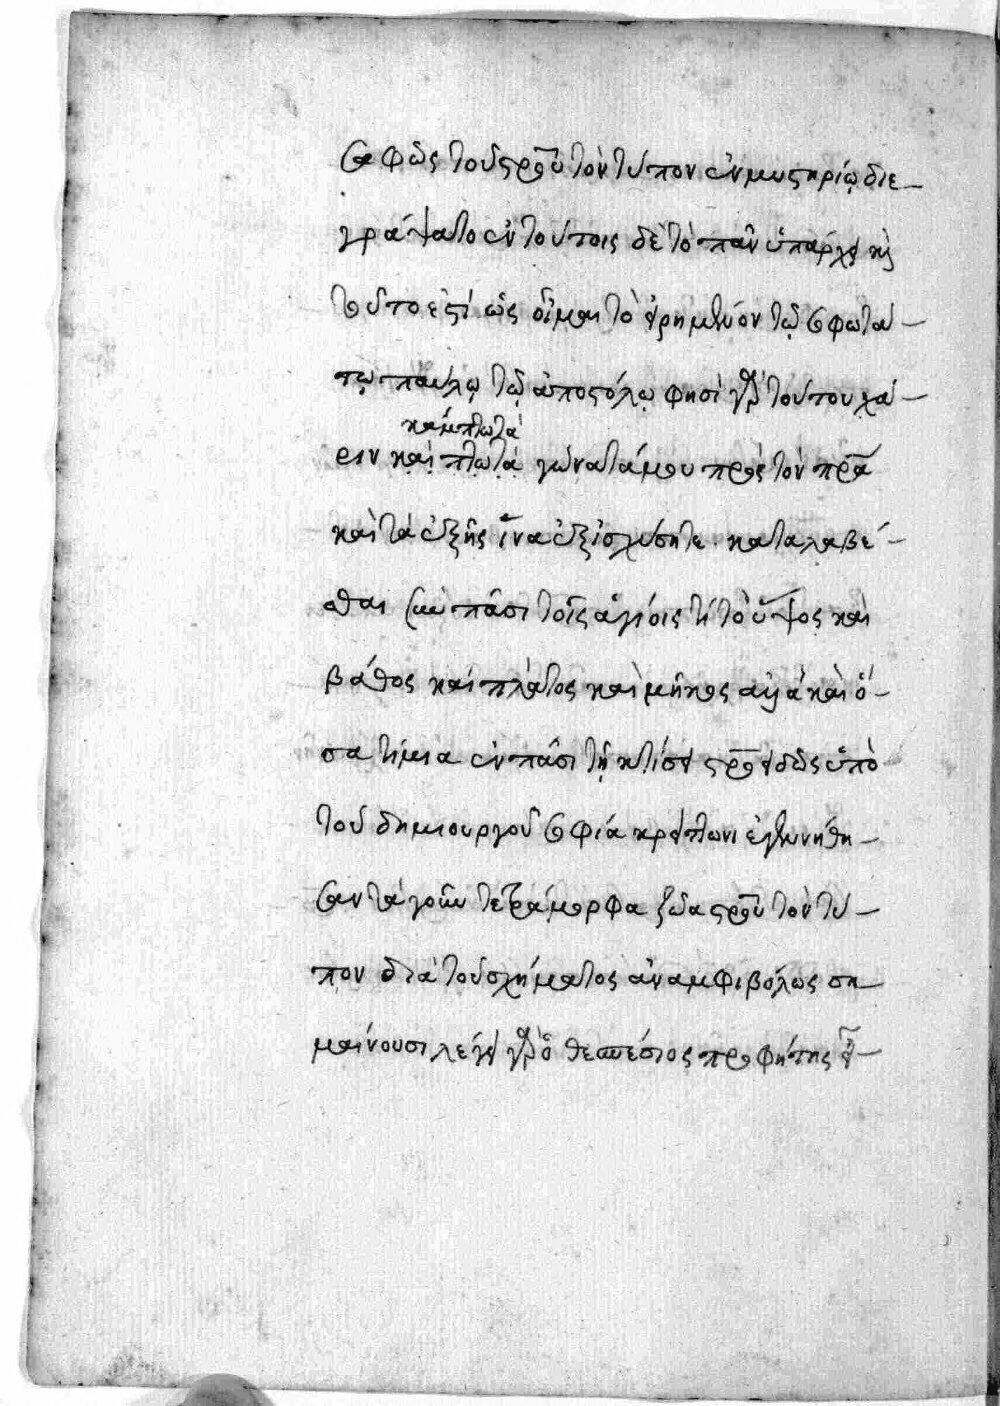 σαφῶς τοῦ σταυροῦ τὸν τύπον ἐν μυστηρίῳ διε
γράψατο ἐν τούτοις δὲ τὸ πᾶν ὑπάρχει καὶ
τοῦτο ἐστί ὡς οἶμαι τὸ εἰρημένον τῷ σοφωτά
τῳ παύλῳ τῷ ἀποστόλῳ φησὶ γὰρ τούτου χά
κάμπτω τὰ
ριν καὶ πτωτὰ γώνατά μου πρὸς τὸν πρα
καὶ τὰ ἐξῆς ἵνα ἐξισχύσητε καταλαβέ
σθαι σὺν πᾶσι τοῖς ἁγίοις τί τὸ ὕψος καὶ
βάθος καὶ πλάτος καὶ μῆκος ἀλλὰ καὶ ὅ
σα τίμια ἐν πάσῃ τῇ κτίσει σταυροειδῶς ὑπὸ
τοῦ δημιουργοῦ σοφία κρείττωνι ἐγεννήθη
σαν τὰ γοῦν τετράμορφα ζῶα σταυροῦ τὸν τύ
πον διὰ τοῦ σχήματος ἀναμφιβόλως ση
μαίνουσι λέγει γὰρ ὁ θεσπέσιος προφήτης εἶ